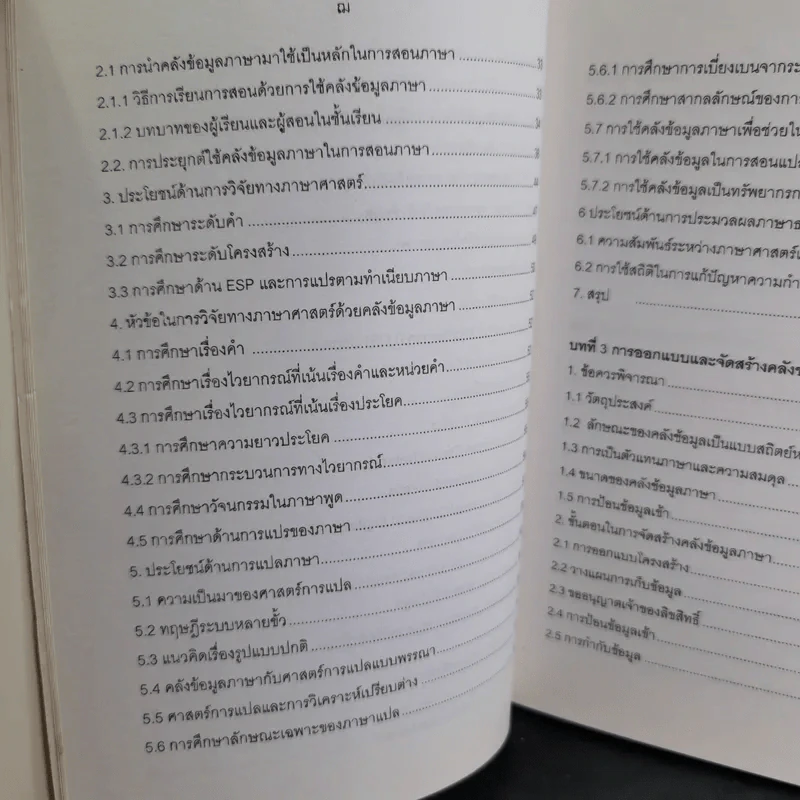 ฌ
2.1 การนำคลังข้อมูลภาษามาใช้เป็นหลักในการสอนภาษา
2.1.1 วิธีการเรียนการสอนด้วยการใช้คลังข้อมูลภาษา
2.1.2 บทบาทของผู้เรียนและผู้สอนในชั้นเรียน
2.2. การประยุกต์ใช้คลังข้อมูลภาษาในการสอนภาษา
3. ประโยชน์ด้านการวิจัยทางภาษาศาสตร์
3.1 การศึกษาระดับคำ
3.2 การศึกษาระดับโครงสร้าง
3.3 การศึกษาด้าน ESP และการแปรตามทำเนียบภาษา
4. หัวข้อในการวิจัยทางภาษาศาสตร์ด้วยคลังข้อมูลภาษา
4.1 การศึกษาเรื่องคำ
4.2 การศึกษาเรื่องไวยากรณ์ที่เน้นเรื่องคำและหน่วยคำ
4.3 การศึกษาเรื่องไวยากรณ์ที่เน้นเรื่องประโยค
4.3.1 การศึกษาความยาวประโยค
4.3.2 การศึกษากระบวนการทางไวยากรณ์
4.4 การศึกษาวัจนกรรมในภาษาพูด
4.5 การศึกษาด้านการแปรของภาษา
5. ประโยชน์ด้านการแปลภาษา
5.1 ความเป็นมาของศาสตร์การแปล
5.2 ทฤษฎีระบบหลายขั้ว
5.3 แนวคิดเรื่องรูปแบบปกติ
5.4 คลังข้อมูลภาษากับศาสตร์การแปลแบบพรรณา
5.5 ศาสตร์การแปลและการวิเคราะห์เปรียบต่าง
5.6 การศึกษาลักษณะเฉพาะของภาษาแปล
5.6.1 การศึกษาการเบี่ยงเบนจากระ
5.6.2 การศึกษาสากลลักษณ์ของกา
5.7 การใช้คลังข้อมูลภาษาเพื่อช่วยใน
5.7.1 การใช้คลังข้อมูลในการสอนแปล
5.7.2 การใช้คลังข้อมูลเป็นทรัพยากรก
6 ประโยชน์ด้านการประมวลผลภาษาธ
6.1 ความสัมพันธ์ระหว่างภาษาศาสตร์
6.2 การใช้สถิติในการแก้ปัญหาความกำ
7. สรุป
บทที่ 3 การออกแบบและจัดสร้างคลังข
1. ข้อควรพิจารณา
1.1 วัตถุประสงค์
1.2 ลักษณะของคลังข้อมูลเป็นแบบสถิตย์ห
1.3 การเป็นตัวแทนภาษาและความสมดุล
1.4 ขนาดของคลังข้อมูลภาษา
1.5 การป้อนข้อมูลเข้า
2. ขั้นตอนในการจัดสร้างคลังข้อมูลภาษา
2.1 การออกแบบโครงสร้าง
2.2 วางแผนการเก็บข้อมูล
2.3 ขออนุญาตเจ้าของลิขสิทธิ์
2.4 การป้อนข้อมูลเข้า
2.5 การกำกับข้อมูล